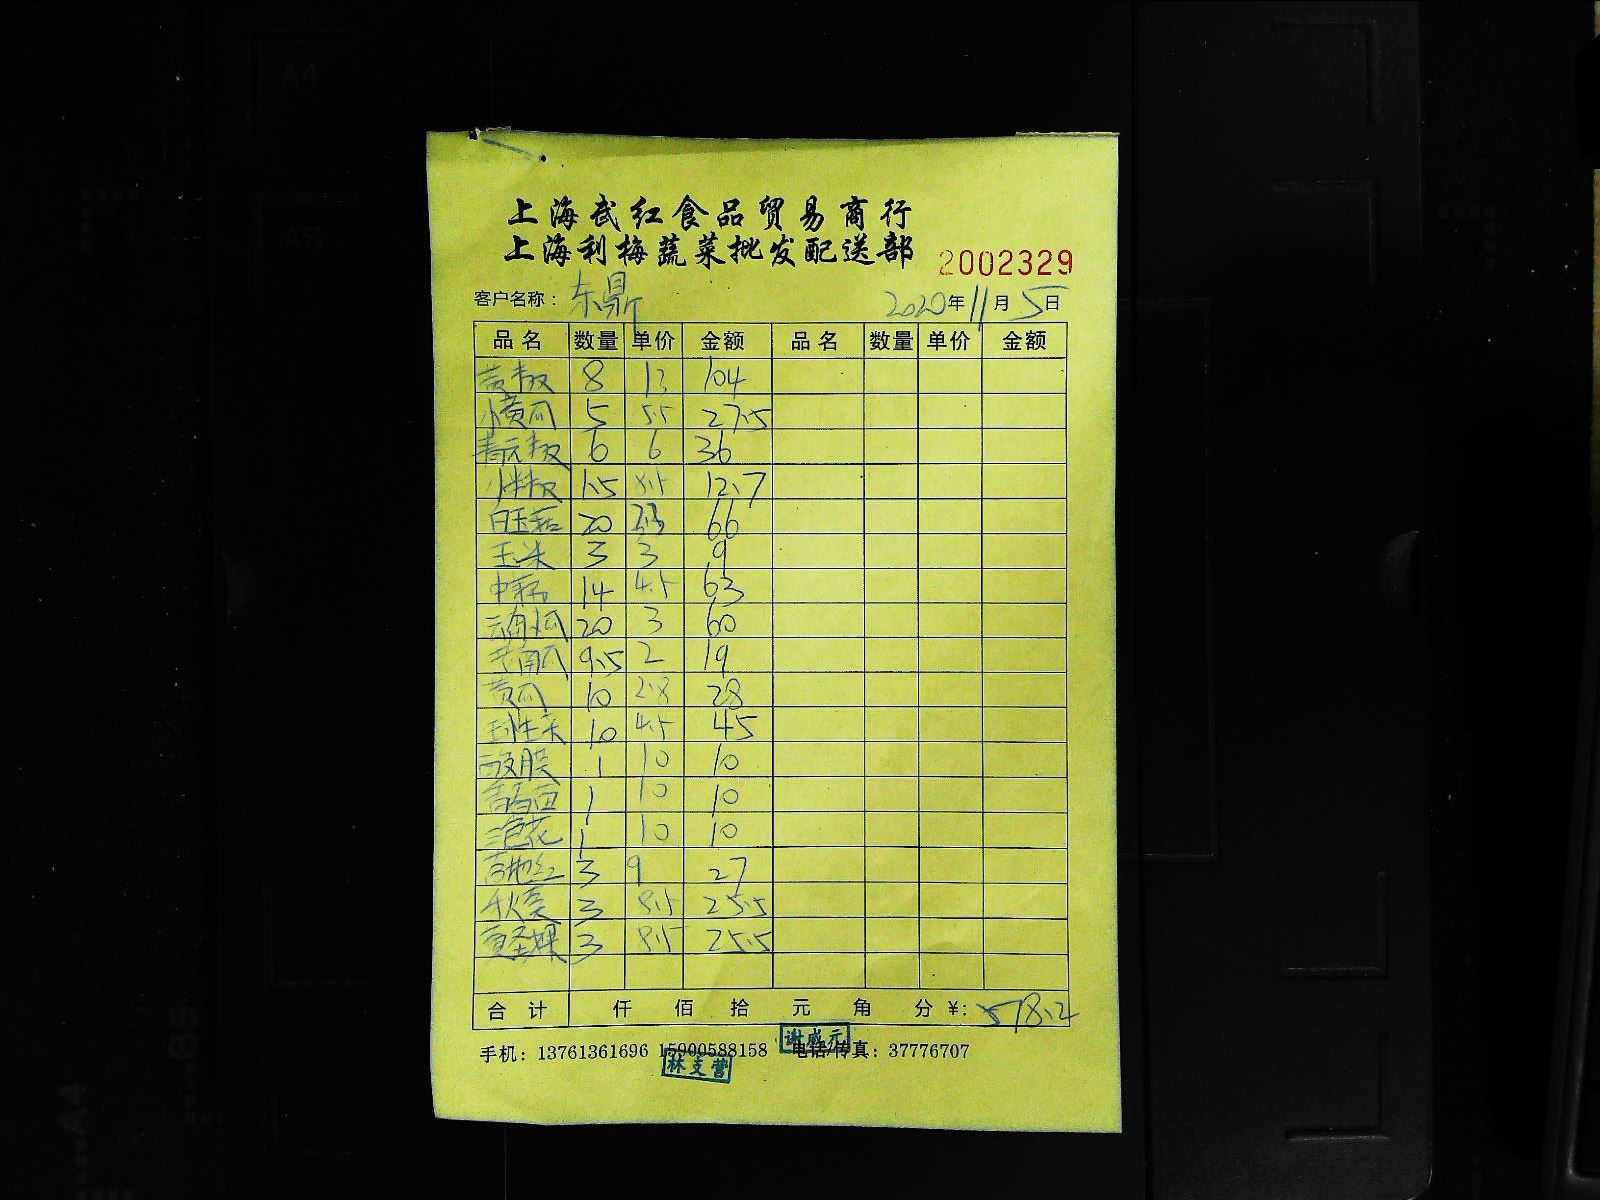 上海武红食品贸易商行
上海利梅蔬菜批发配送部
2002329
客户名称：东鼎 2020年11月5日
品名 数量 单价 金额 品名 数量 单价 金额
黄椒 8 13 104
小黄瓜 5 5.5 27.5
青元椒 6 6 36
小米椒 1.5 8.5 12.7
白玉菇 20 3.3 66
玉米 3 3 9
中藕 14 4.5 63
20 3 60
老南瓜 9.5 2 19
黄瓜 10 2.8 28
10 4.5 45
1 10 10
1 10 10
三色花 1 10 10
3 9 27
秋葵 3 8.5 25.5
3 8.5 25.5
合计 仟 佰 拾 元 角 分 ¥: 578.2
手机：13761361696 15900588158 电话/传真：37776707
谢成元
林支营
A4
A5
B5
A4